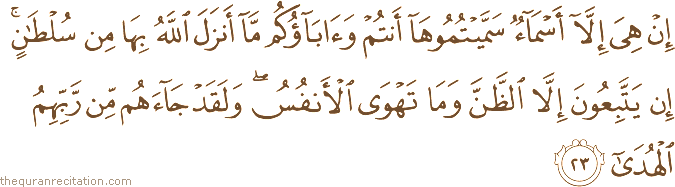 إِنْ هِىَ إِلَّآ أَسْمَآءٌ سَمَّيْتُمُوهَآ أَنتُمْ وَءَابَآؤُكُم مَّآ أَنزَلَ ٱللَّهُ بِهَا مِن سُلْطَـٰنٍ ۚ
إِن يَتَّبِعُونَ إِلَّا ٱلظَّنَّ وَمَا تَهْوَى ٱلْأَنفُسُ ۖ وَلَقَدْ جَآءَهُم مِّن رَّبِّهِمُ
ٱلْهُدَىٰٓ ٢٣
thequranrecitation.com